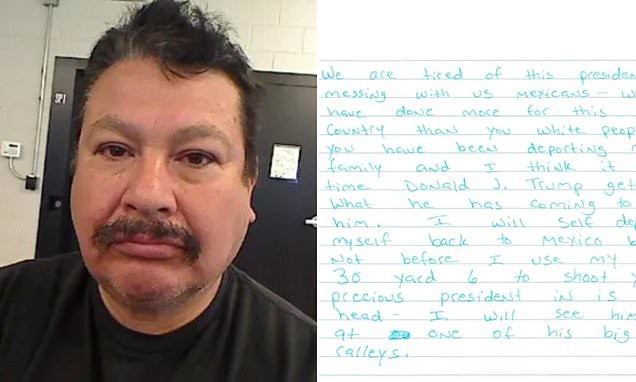 We are tired of this presiden
messing with us mexicans - w
have done more for this
Country than you white peop
you have been deporting m
family and I think it
time Donald J. Trump get
What he has coming to
him. I will self dep
myself back to Mexico b
Not before I use my
30 yard 6 to shoot y
precious president in is
head - I will see him
at one of his big
ralleys.